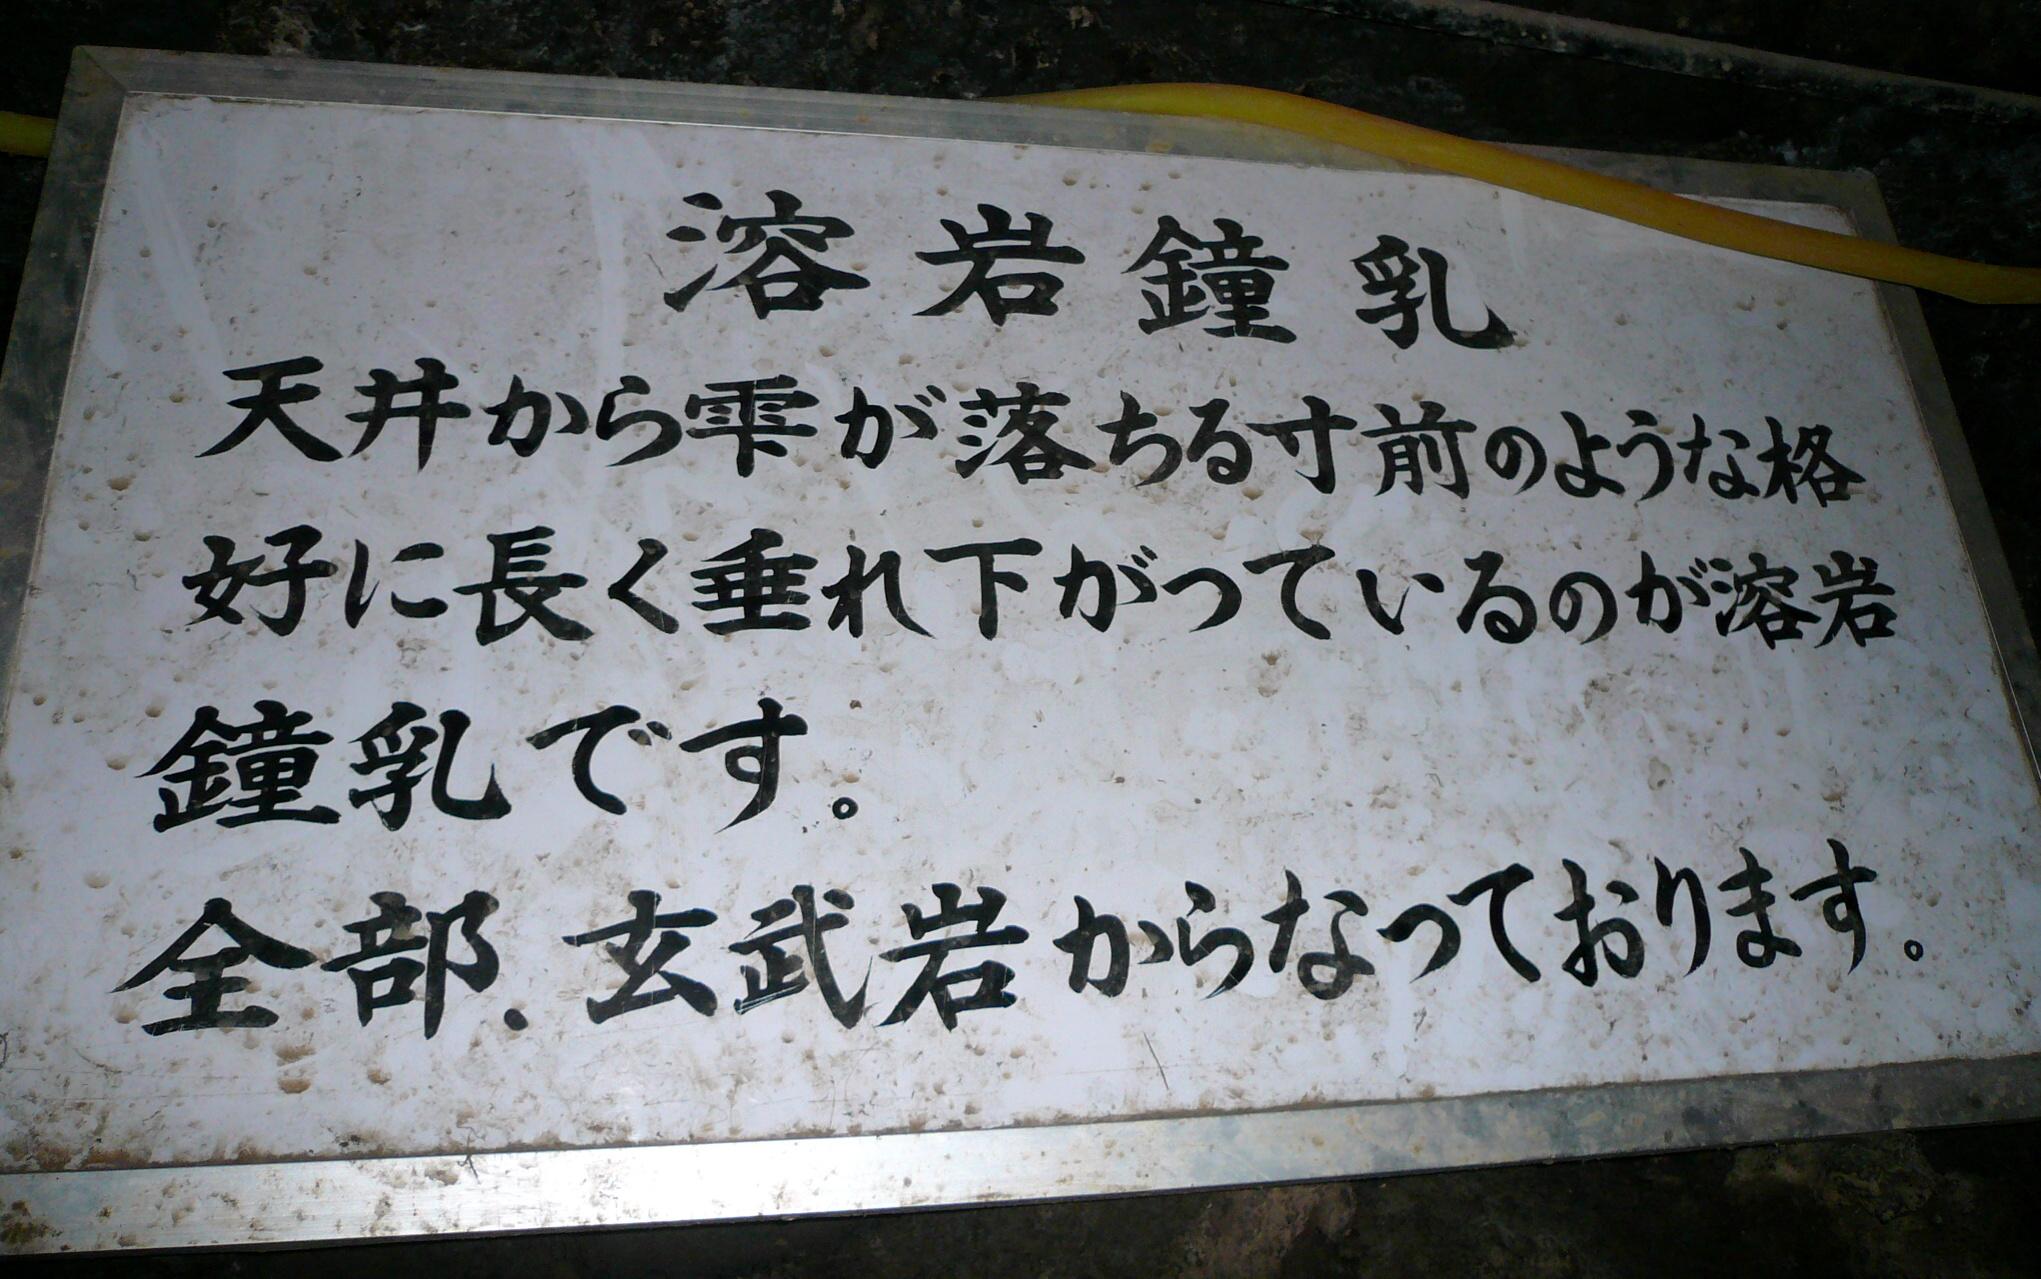 溶岩鐘乳
天井から雫が落ちる寸前のような格
好に長く垂れ下がっているのが溶岩
鐘乳です。
全部、玄武岩からなっております。